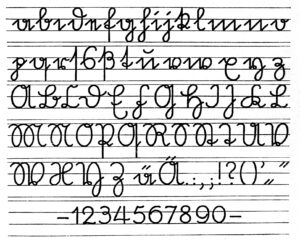 abcdefghijklmno
pqrſsßtuvwxyz
ABCDEFGHIJKL
MNOPQRSTUV
WXYZüÄ.:,;!?()’„“
–1234567890–